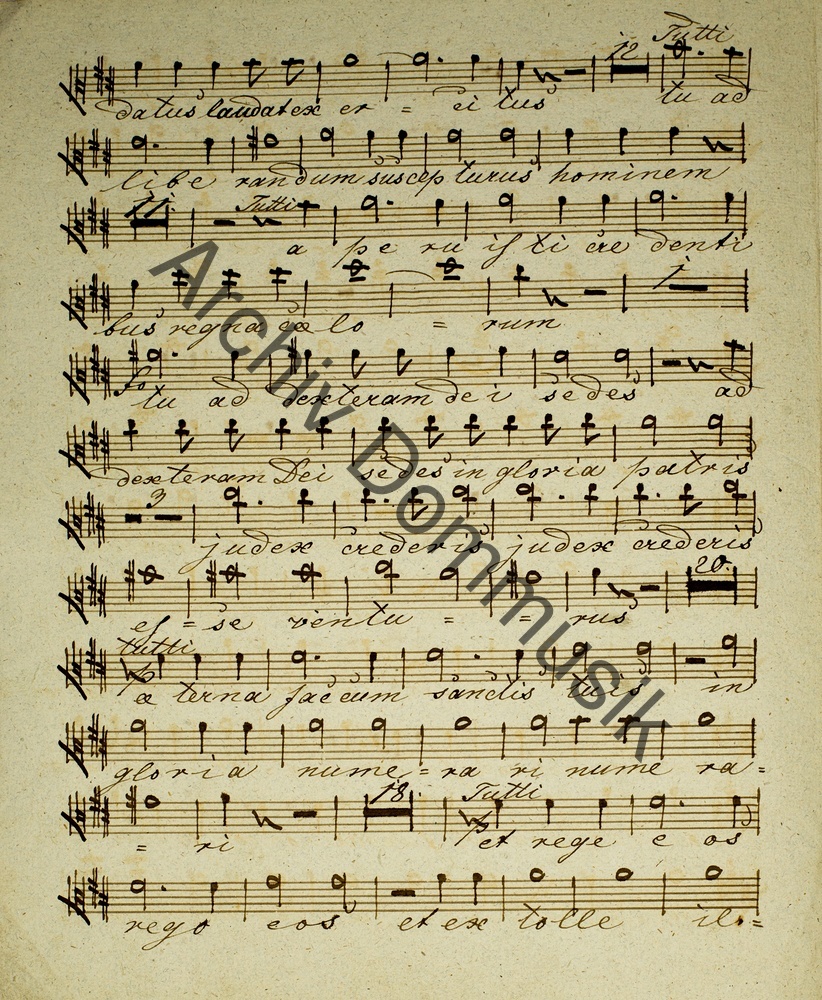 12 Tutti
datus laudat ex er = ci tus tu ad
libe randum suscep turus hominem
11. Tutti
a pe ru is ti cre denti
1
bus regna cœ lo = rum
fo
tu ad dexteram de i sedes ad
dexteram Dei sedes in gloria patris
3
judex crederis judex crederis
20.
es = se ventu = = rus
tutti
p
æ terna fac cum sanctis tuis in
gloria nume = ra ri nume ra =
18. Tutti
p
= ri et rege e os
rege eos et ex tolle il =
Archiv Dommusik